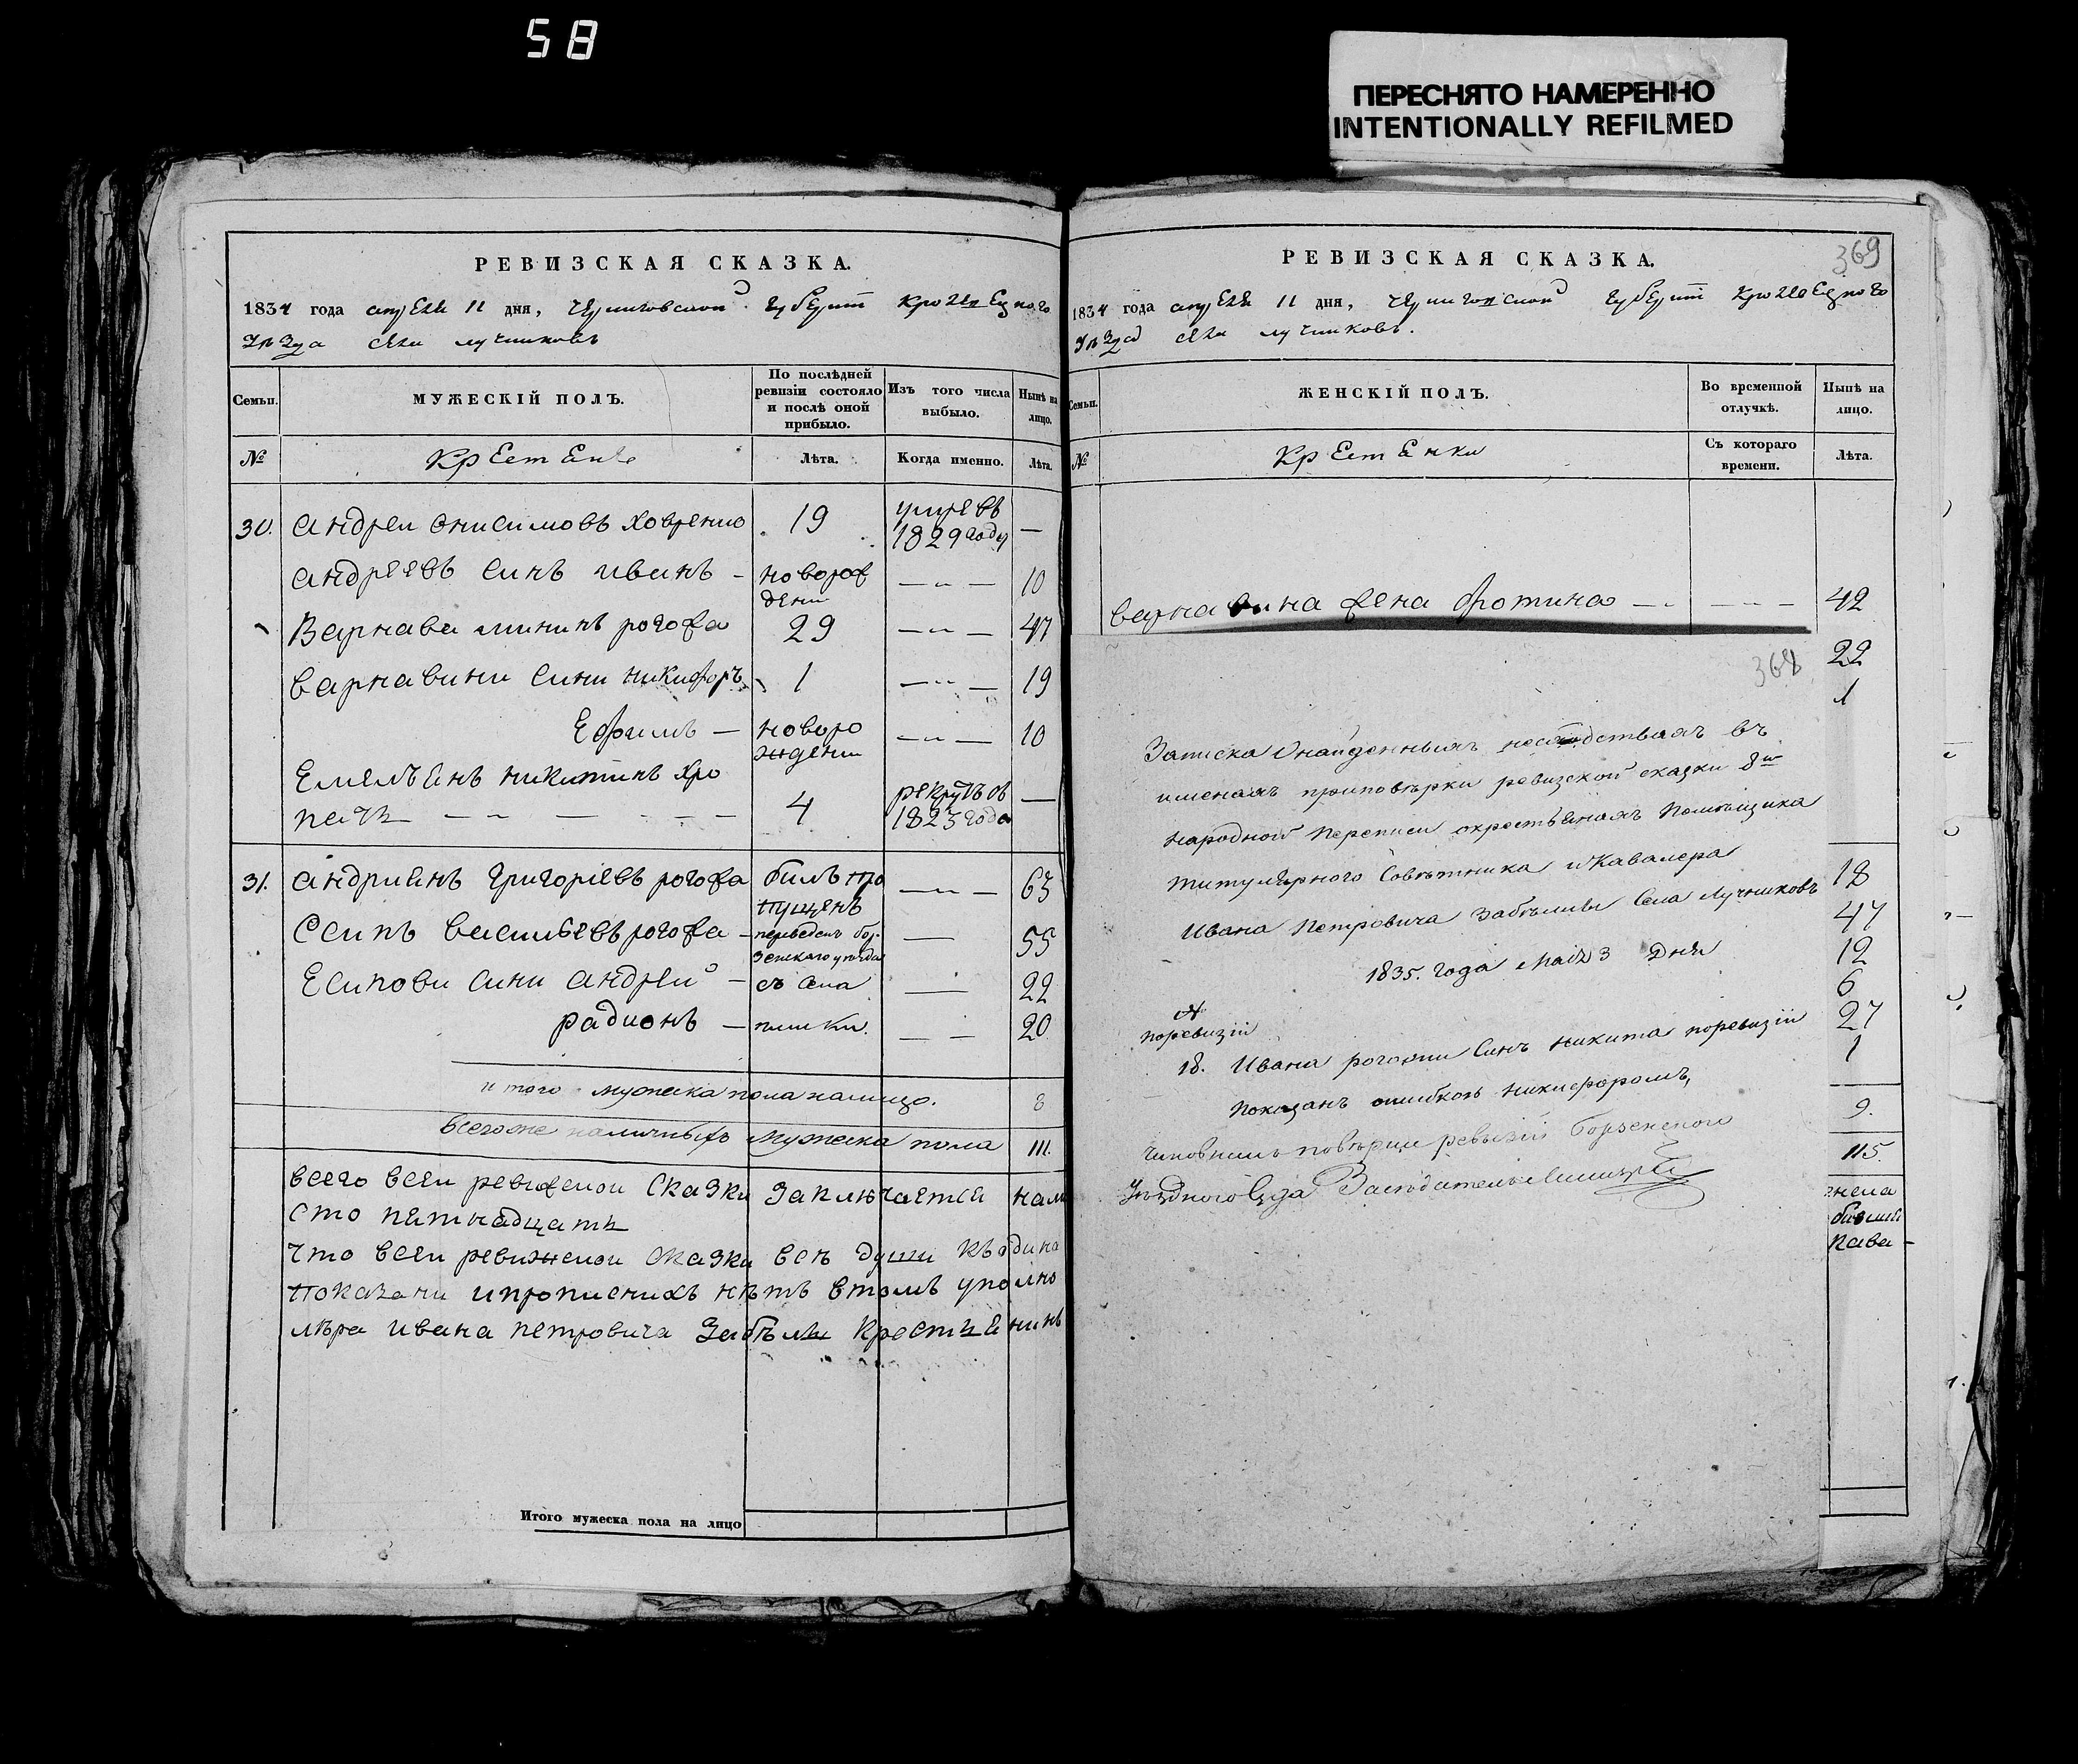 58
ПЕРЕСНЯТО НАМЕРЕННО
INTENTIONALLY REFILMED
РЕВИЗСКАЯ СКАЗКА.
1834 года апрЕля 11 дня, чЕрниговской губЕрнии кролевЕцкого
уѣзда сЕла лучниковъ
Семьи.
МУЖЕСКІЙ ПОЛЪ.
По послѣдней ревизіи состояло и послѣ оной прибыло.
Изъ того числа выбыло.
Нынѣ на лицо.
№
КрЕстЕне
Лѣта.
Когда именно.
Лѣта.
30. андреи онисимовъ ховренко 19 умревъ 1829 году —
андрѣевъ синъ иванъ - новорож дени — 〃 — 10
Варнава мининъ рогожа 29 — 〃 — 47
варнавини сини никифоръ 1 — 〃 — 19
Ефимъ — новоро ждени — 〃 — 10
Емельянъ никитинъ хро
пачъ 4 рекрутъ въ 1823 года —
31. андриянъ григоріевъ рогожа билъ про пущенъ — 〃 — 63
Есипъ василиевъ рогожа - переведенъ бор- зенскаго уезда — 55
Есипови сини андрей - съ села — 22
радионъ — 20
итого мужеска пола налицо. 8
всего же наличныхъ мужеска пола 111.
всего всеи ревижскои сказки заключается нали
сто пятнадцать
что всеи ревижскои сказки всѣ души къ одина
показани и прописнихъ нѣтъ втомъ уполно
лѣра ивана петровича Забѣли крестиянинъ
Итого мужеска пола на лицо
РЕВИЗСКАЯ СКАЗКА.
369
1834 года апрЕля 11 дня, чЕрниговской губЕрнии кролевЕцкого
уѣзда сЕла лучниковъ.
Семьи.
ЖЕНСКІЙ ПОЛЪ.
Во временной отлучкѣ.
Нынѣ на лицо.
№
КрЕстЕнки
Съ котораго времени.
Лѣта.
варнавина жена фотина — — 〃 — 42
368
22
1
Записка Онайденныхъ въ
именахъ приповѣрки ревизской сказки 8й
народной переписи окрестьянахъ помѣщика
титулярного Совѣтника и Кавалера
Ивана Петровича Забѣлины Села Лучниковъ
1835. года Маія 3 Дня
№
поревизіи
18. Ивана рогожи Синъ никита поревизіи
показанъ ошибкою никифоромъ,
Чиновникъ повѣрщи ревизіи Борзенского
Уѣздного Суда Засѣдатель
18
47
12
6
27
1
9.
115.
бивши
Кава-